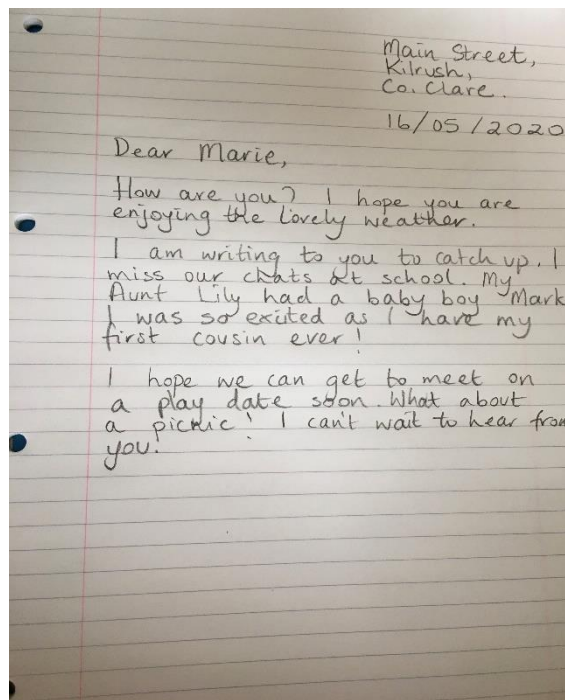 Main Street,
Kilrush,
Co. Clare.
16/05/2020
Dear Marie,
How are you? I hope you are
enjoying the lovely weather.
I am writing to you to catch up. I
miss our chats at school. My
Aunt Lily had a baby boy Mark
I was so exited as I have my
first cousin ever!
I hope we can get to meet on
a play date soon. What about
a picnic! I can't wait to hear from
you.